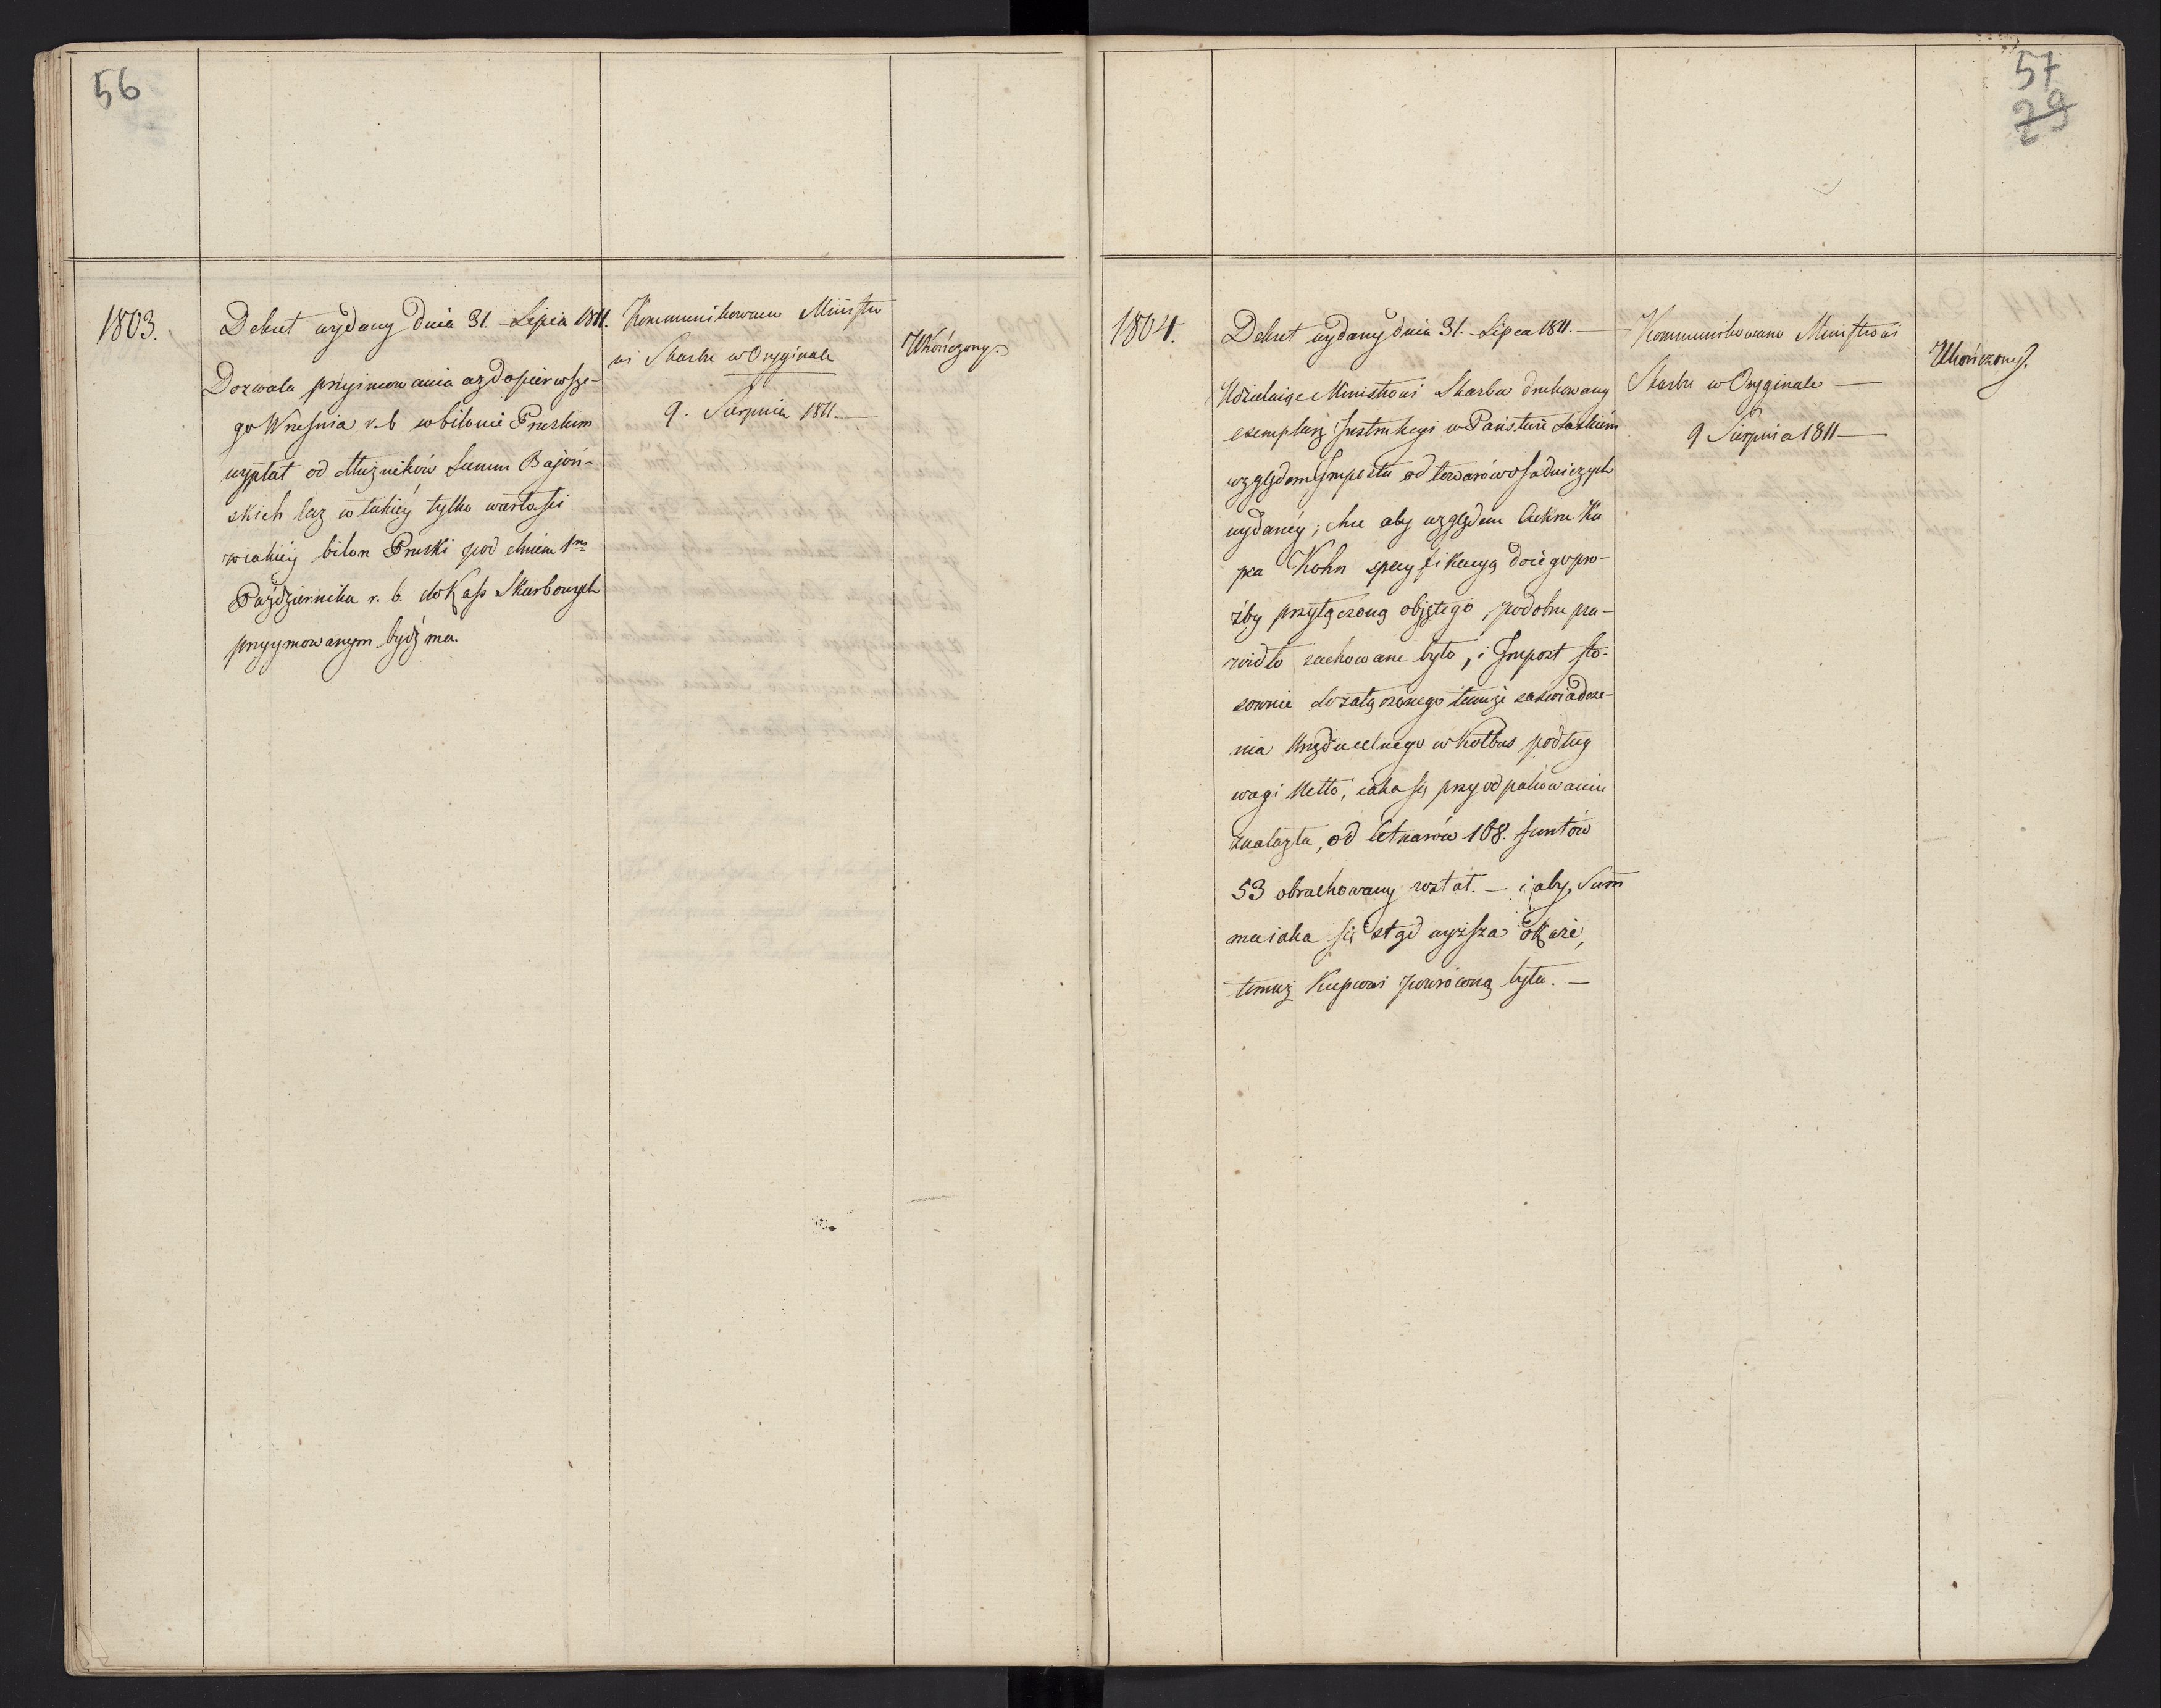 56
1803.
Dekret wydany dnia 31. Lipca 1811.
Dozwala przyimowania aż do pierwsze-
go Wrzesnia r. b w bilonie Pruskim
wypłat od dłużników Summ Bajoń-
skich lecz w takiéy tylko wartości
w iakiéy bilon Pruski pod dniem 1m
Października r. b. do Kass Skarbowych
przyymowanym bydź ma.
Kommunikowano Ministro
wi Skarbu w Oryginale
9. Sierpnia 1811.—
Ukończony.
57
29
1804.
Dekret wydany dnia 31. Lipca 1811.—
Udzielaiąc Ministrowi Skarbu drukowany
exemplarz Instrukcyi w Państwie Saskiém
względem Impostu od towarów osadniczych
wydanéy; chce aby względem Cukru Ku
pca Kohn specyfikacyą do iego pro-
źby przyłączoną objętego, podobne pra-
widło zachowane było, i Impost sto-
sownie do załączonego tamże zaswiadcze-
nia Urzędu celnego w Kotbus podług
wagi Netto, iaka się przy odpakowaniu
znalazła, od Cetnarów 168. funtów
53 obrachowany został. — i aby Sum
ma iaka się ztąd wyższa okaże,
temuż Kupcowi powróconą była. —
Kommunikowano Ministrowi
Skarbu w Oryginale —
9 Sierpnia 1811 —
Ukończony.